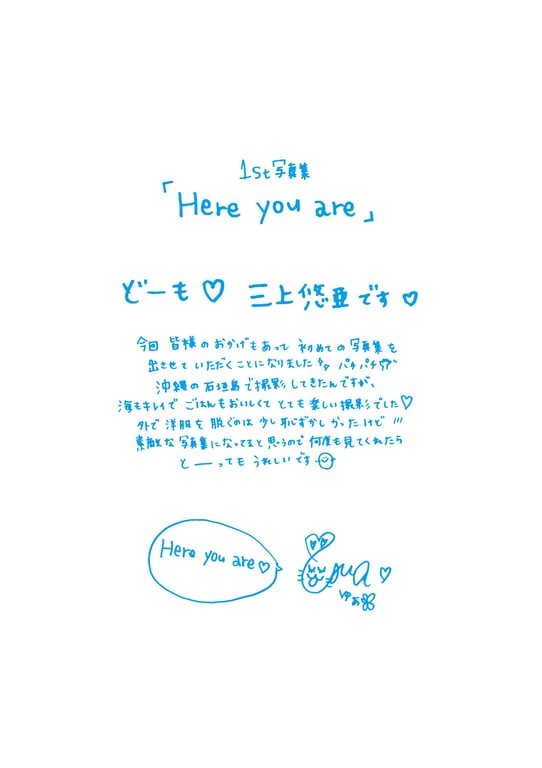 1st写真集
「Here you are」
どーも♡ 三上悠亜です♡
今回 皆様のおかげもあって 初めての写真集を
出させていただくことになりました パチパチ
沖縄の石垣島で撮影してきたんですが、
海もキレイで ごはんもおいしくて とても楽しい撮影でした♡
外で洋服を脱ぐのは少し恥ずかしかったけど
素敵な写真集になってると思うので 何度も見てくれたら
とーっても うれしいです
Here you are♡
yua♡
ゆあ